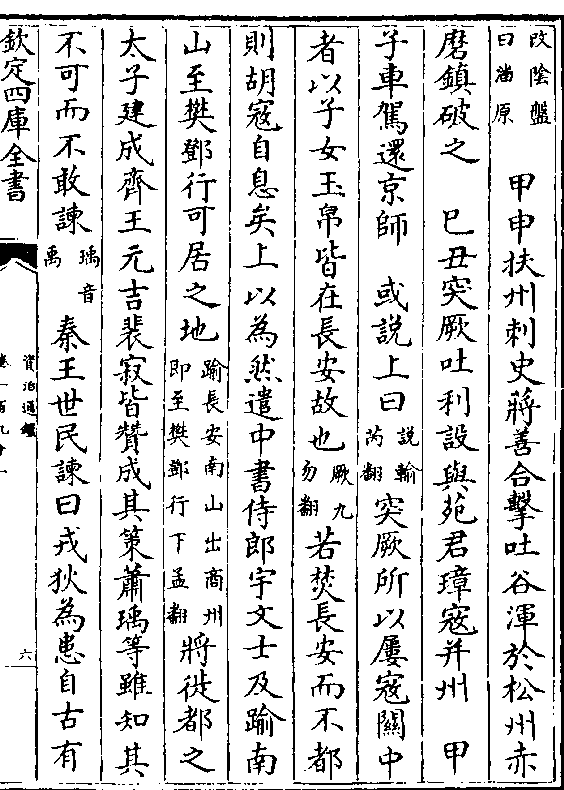 改隂盤曰潘原 甲申扶州刺史蔣善合擊吐谷渾於松州赤
磨鎮破之 己丑突厥吐利設與苑君璋寇并州 甲
子車駕還京師 或說上曰說輸芮翻突厥所以屢寇關中
者以子女玉帛皆在長安故也厥九勿翻若焚長安而不都
則胡寇自息矣上以為然遣中書侍郎宇文士及踰南
山至樊鄧行可居之地踰長安南山出商州即至樊鄧行下孟翻將徙都之
太子建成齊王元吉裴寂皆贊成其策蕭瑀等雖知其
不可而不敢諫瑀音禹秦王世民諫曰戎狄為患自古有
欽定四庫全書
資治通鑑
六